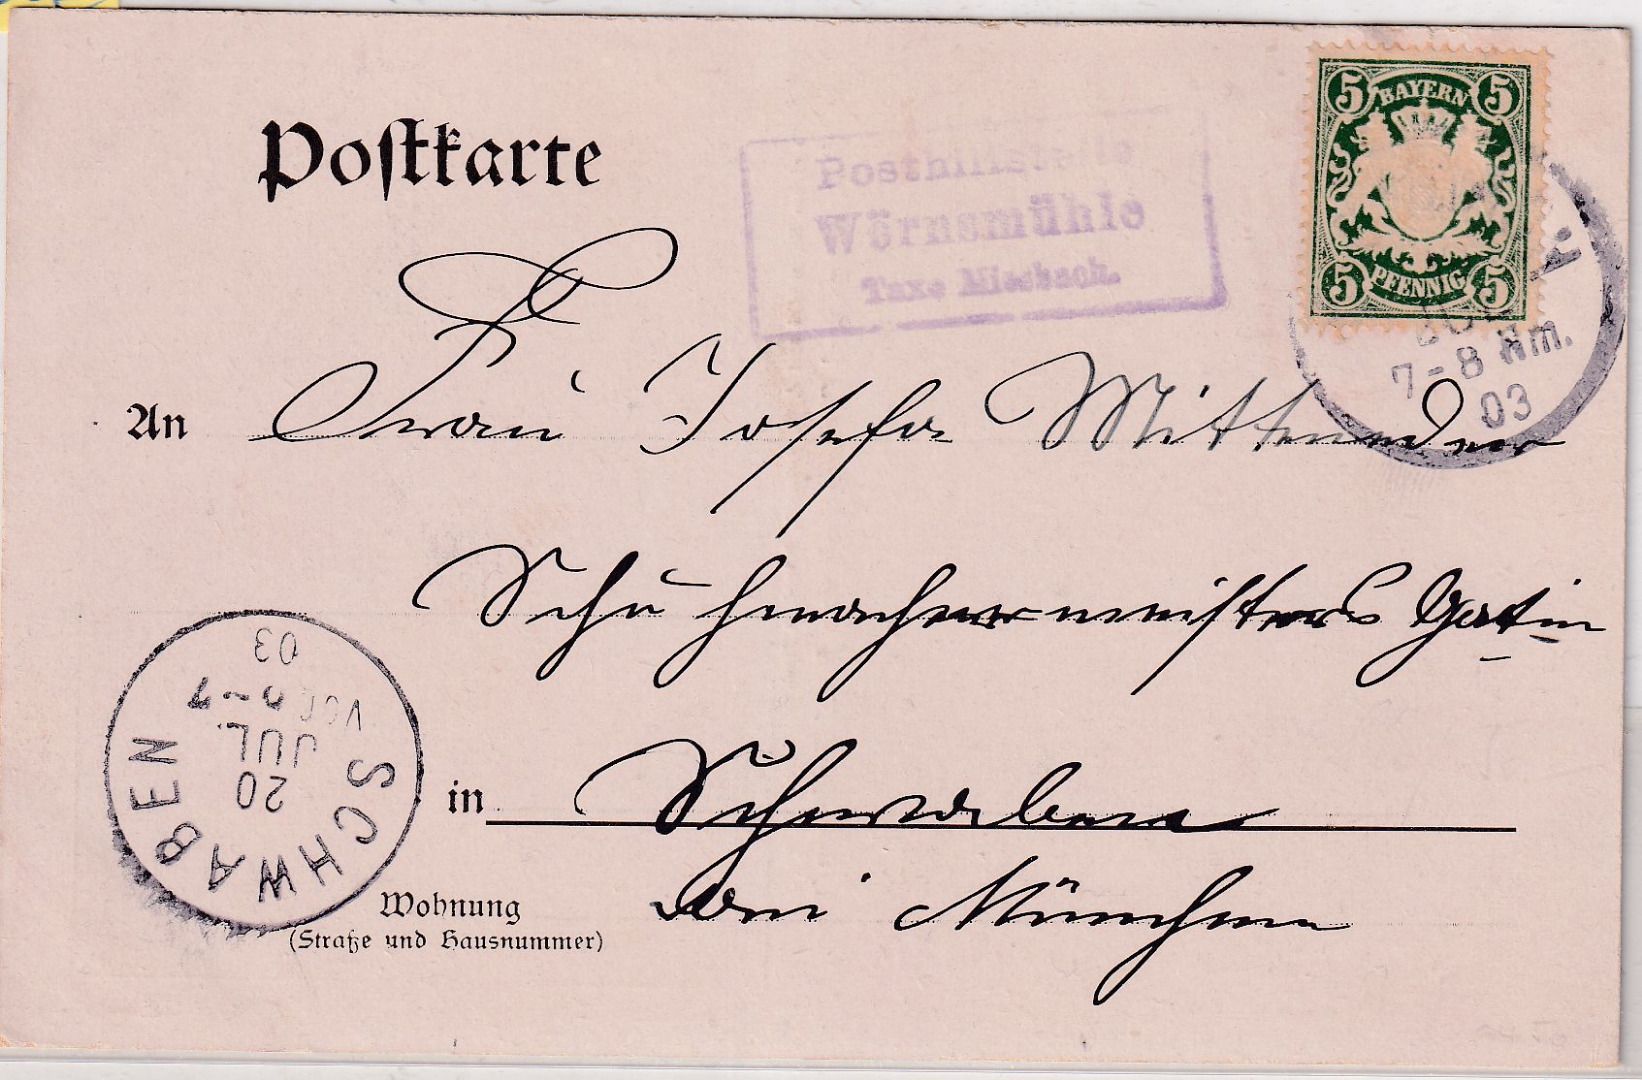 Postkarte
Posthilfstelle
Wörnsmühle
Taxe Miesbach.
5 BAYERN 5
5 PFENNIG 5
7-8 Nm.
03
An Frau Josefa Mittermeier
Schuhmachermeisters Gattin
in Schwaben
bei München
Wohnung
(Straße und Hausnummer)
SCHWABEN
20
JUL.
VOR. 6-7
03